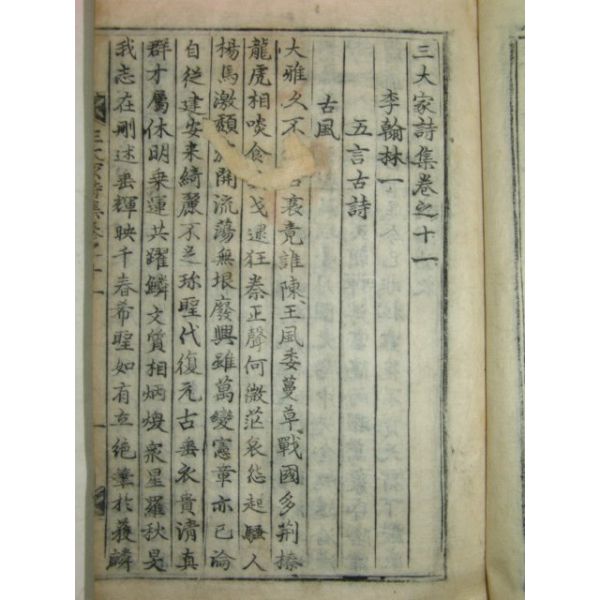 三大家詩集卷之十一
李翰林一
五言古詩
古風
大雅久不 衰竟誰陳王風委蔓草戰國多荆榛
龍虎相啖食 戈逮狂秦正聲何微茫哀怨起騷人
楊馬激頹 開流蕩無垠廢興雖萬變憲章亦已淪
自從建安來綺麗不足珍聖代復元古垂衣貴清真
群才屬休明乗運共躍鱗文質相炳煥衆星羅秋旻
我志在刪述垂輝映千春希聖如有立絶筆於獲麟
三大家詩集卷之十一
一